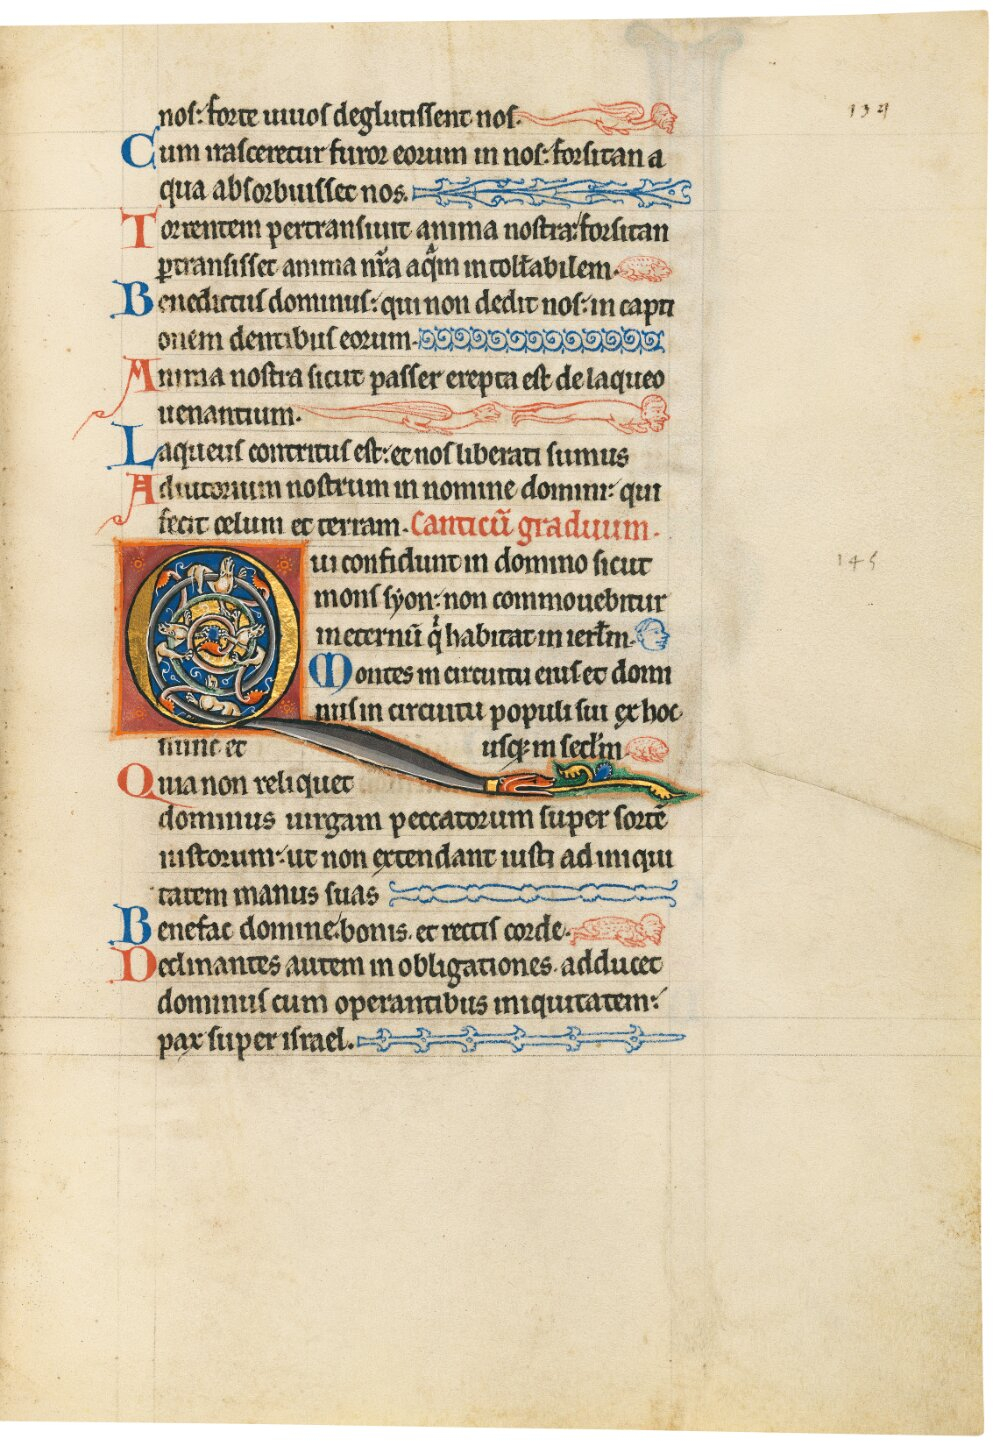 nos: forte uiuos deglutissent nos.
134
Cum irasceretur furor eorum in nos: forsitan a
qua absorbuisset nos.
Torrentem pertransiuit anima nostra: forsitan
ꝑtransisset anima nr̄a aq̄m intoll̄abilem.
Benedictus dominus: qui non dedit nos: in capti
onem dentibus eorum.
Anima nostra sicut passer erepta est de laqueo
uenantium.
Laqueus contritus est: et nos liberati sumus
Adiutorium nostrum in nomine domini: qui
fecit celum et terram. Canticū graduum.
145
Qui confidunt in domino sicut
mons syon: non commouebitur
in eternū qͥ habitat in ierl̄m.
Montes in circuitu eius et domi
nus in circuitu populi sui ex hoc
nunc et usq; in secl̄m
Quia non reliquet
dominus uirgam peccatorum super sortē
iustorum: ut non extendant iusti ad iniqui
tatem manus suas
Benefac domine bonis. et rectis corde.
Declinantes autem in obligationes. adducet
dominus cum operantibus iniquitatem:
pax super israel.